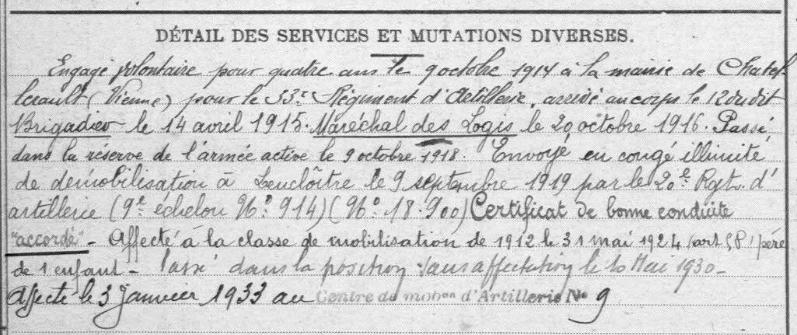 DÉTAIL DES SERVICES ET MUTATIONS DIVERSES.
Engagé volontaire pour quatre ans le 9 octobre 1914 à la mairie de Chatel
lerault (Vienne) pour le 33e Régiment d'Artillerie, arrivé au corps le 12 dudit
Brigadier le 14 avril 1915. Maréchal des Logis le 20 octobre 1916. Passé
dans la réserve de l'armée active le 9 octobre 1918. Envoyé en congé illimité
de démobilisation à Lencloître le 9 septembre 1919 par le 20e Rgt. d'
artillerie (9e échelon No 914) (No 18.900) Certificat de bonne conduite
"accordé" - Affecté à la classe de mobilisation de 1912 le 31 mai 1924 père
de 1 enfant - Passé dans la position sans affectation le 10 Mai 1930 -
Affecté le 3 Janvier 1933 au Centre de mobon d'Artillerie No 9